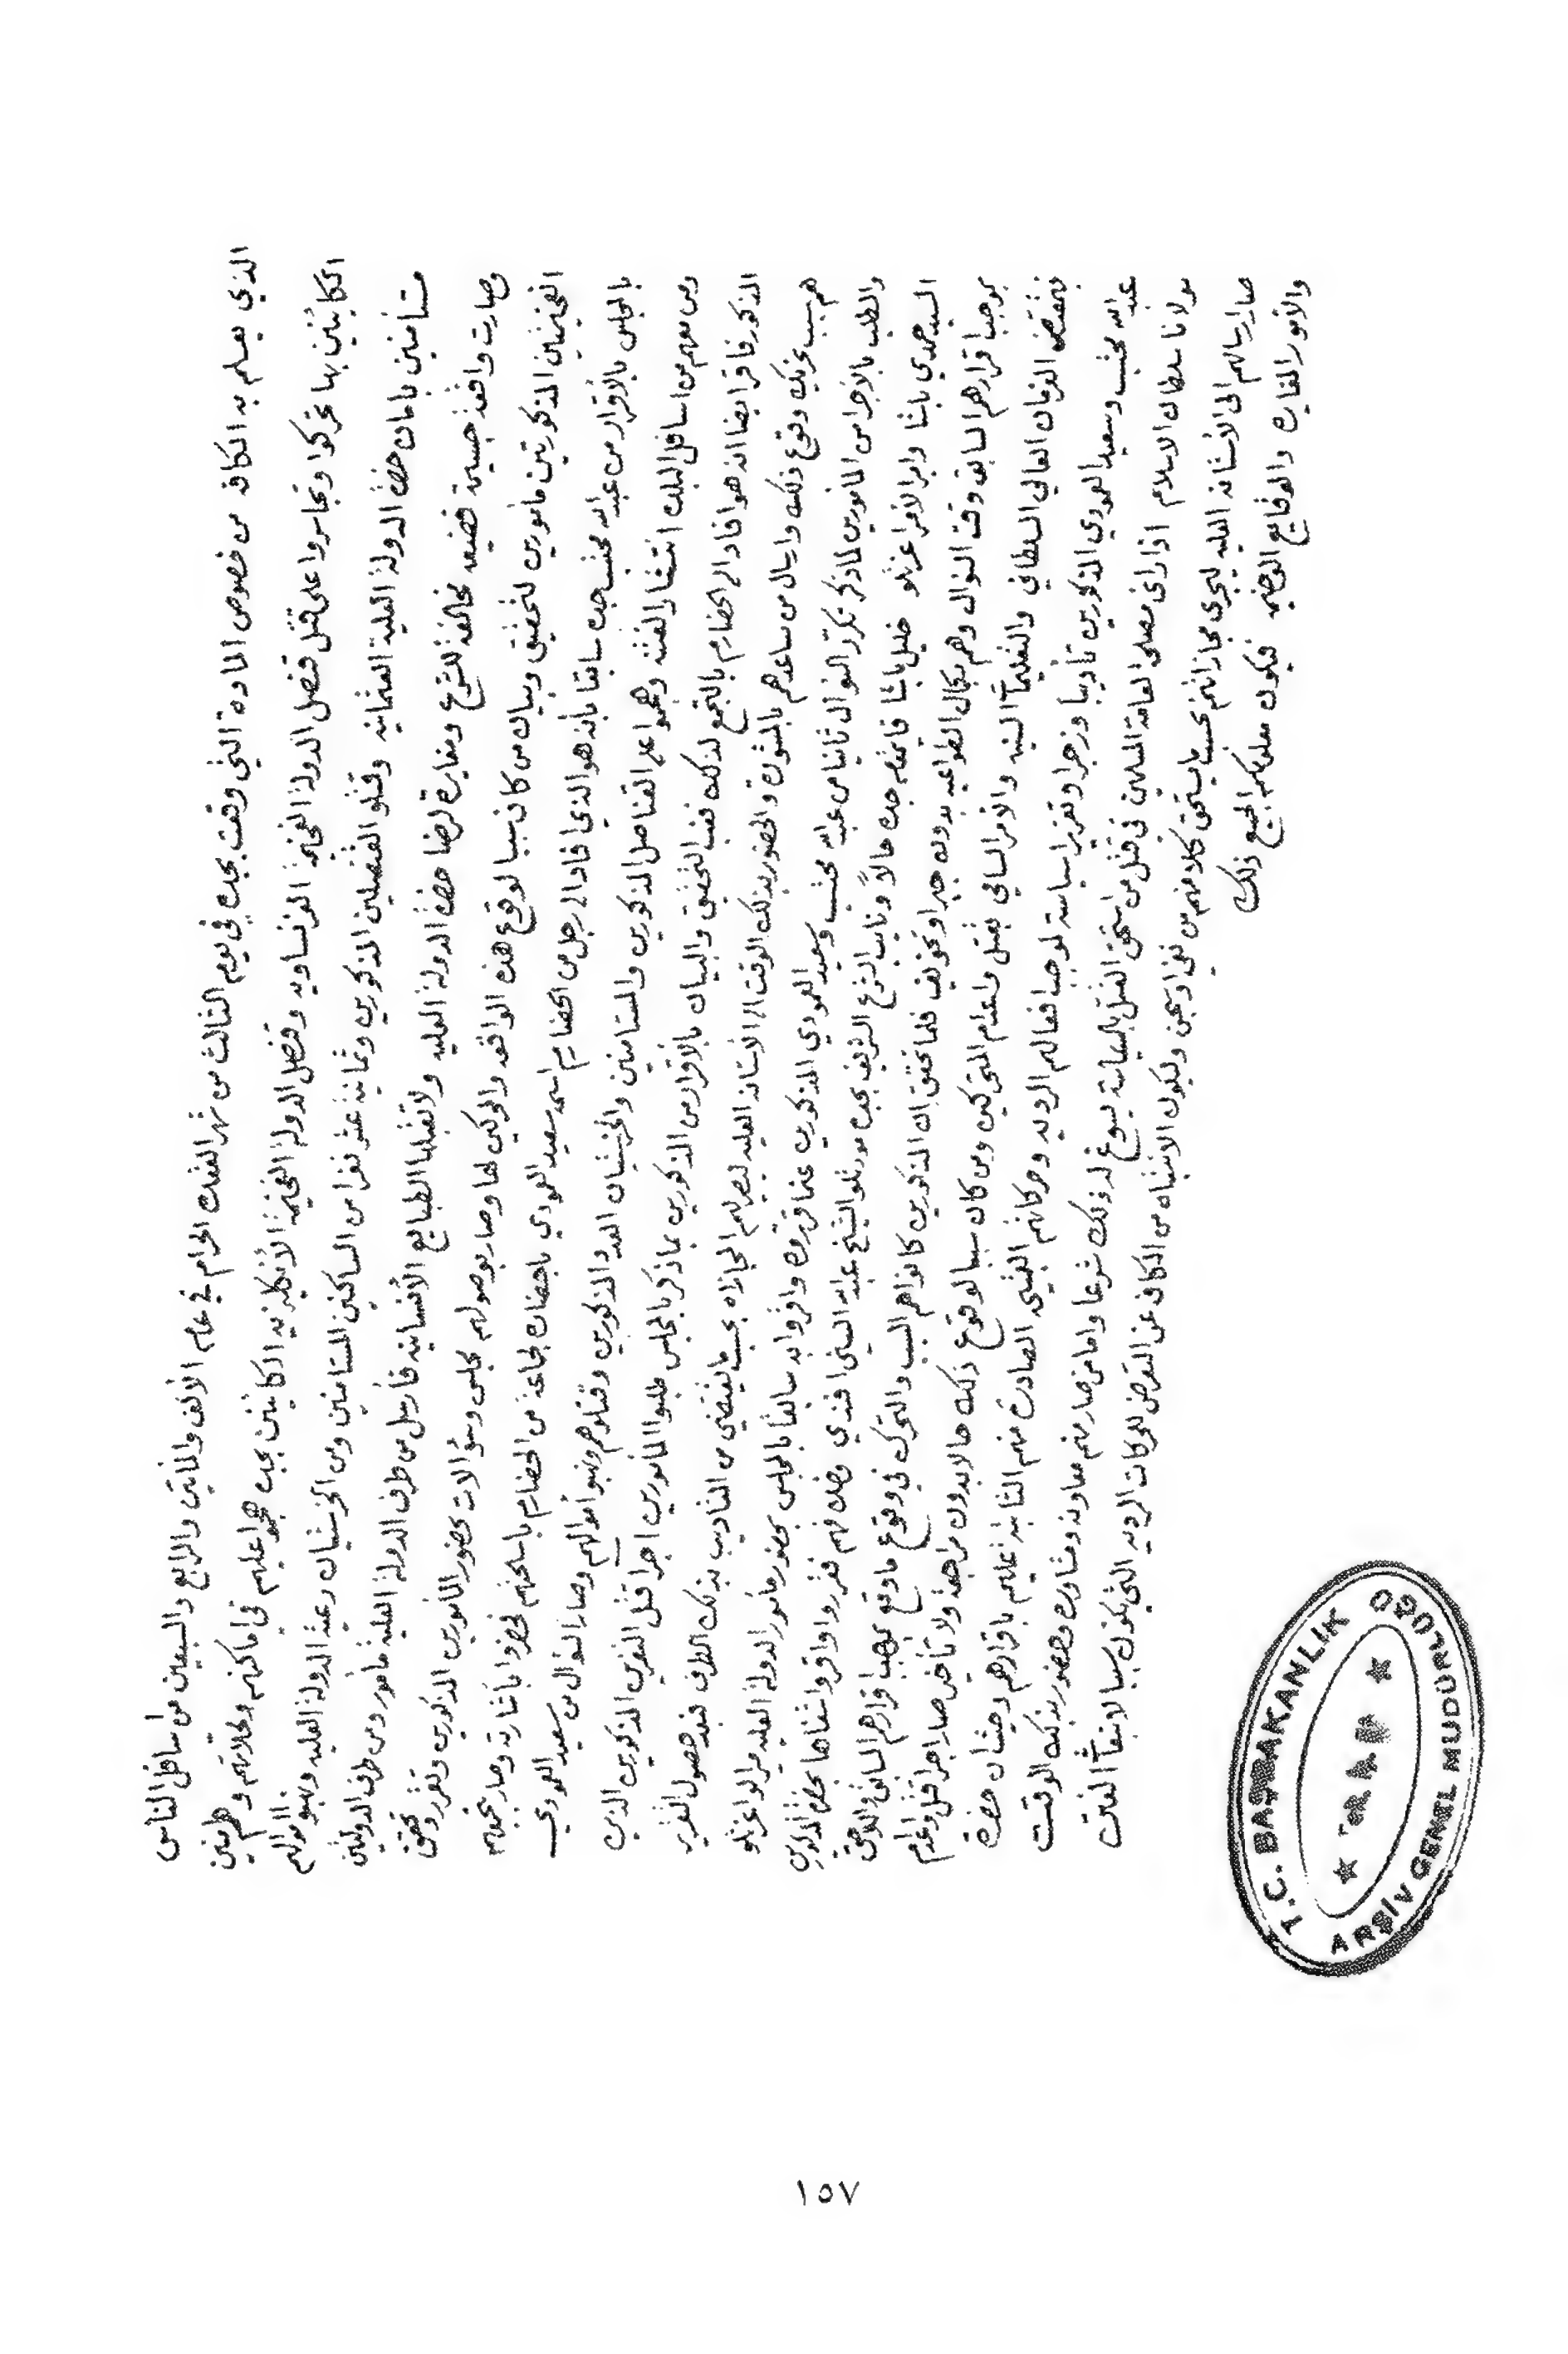 الذي يعلم به الكافه من خصوص المادة التي وقعت بجده في يوم الثالث من شهر القعدة الحرام في عام الألف والمايتين والرابع والسبعين من اسافل الناس
الكائنين بها تحركوا وتجاسروا على قتل قنصل الدولة الفخيمة الفرنساويه وقنصل الدولة الفخيمة الأنكليزيه الكاينين بجده هجموا عليهم في اماكنهم ومحلاتهم وهم
مستأمنين بامان حضرة الدولة العلية العثمانيه وقتلو القنصلين المذكورين وثمانية عشر نفرا من الساكنين المستامنين ومن الخرستيان رعية الدولة العليه ونهبو اموالهم
وصارت واقعة جسيمة فضيعه مخالفة للشرع ومغايرة لرضا حضرة الدولة العليه ولا تقبلها الطبايع الأنسانيه فأرسل من طرف الدولة العلية مأمور ومن طرف الدولتين
الفخيمتين المذكورتين مأمورين لتحقيق وبيان من كان سببا لوقوع هذه الواقعه والمحركين لها وصار بوصولهم مجلس وسؤالات بحضور المأمورين المذكورين وتقرر وتحقق
بالمجلس بالأقرار من عبدالله محتسب جده سابقا بأنه هو الذي افاد الى رجل من الحضارم اسمه سعيد العمودي باحضاره لجماعة من الحضارم باسلحتهم فحضروا بأشارته وصار تجمعهم
ومن معهم من اسافل البلد انتشار الفتنه وهجموا على القناصل المذكورين والمستامنين والخرستيان العدد المذكورين وقتلوهم ونهبو أموالهم وصار السؤال من سعيد العمودي
المذكور فاقر ايضا انه هو افاد الى الحضارم بالتجمع لذلك فبعد التحقيق والبيان بالأقرار من المذكورين بما ذكر بالمجلس طلبوا المأمورين اجرا قتل النفرين المذكورين الذين
هم سبب تحريك وقوع ذلك وارسال من ساعدهم بالمشورة والحضور بذلك الوقت الى الأستانه العليه ليصير لهم المجازاه بحسب ما يقتضي من التأديب بذلك الطرف فبعد حصول التقرير
والطلب بالاجرا من المأمورين لما ذكر تكرر السؤال ثانيا من عبدالله محتسب وسعيد العمودي المذكورين عما قرروه واقروا به سابقا بالمجلس بحضور مأمور الدولة العليه مير الوا عزتلو
السيد حمدي باشا وامير الامرا عزتلو خليل باشا قايمقام جده حالاً ونايب الشرع الشريف بجده مودتلو الشيخ عبدالله افندي فقرروا واقروا شفاها بحضرة المذكورين
بموجب اقرارهم السابق وقت السؤال وهم بكمال الطواعيه بدون جبر او تخويف فلما تحقق ان المذكورين كانوا هم السبب والتحرك في وقوع ما وقع بموجب اقرارهم السابق واللاحق
فبمقتضى الفرمان العالي السلطاني والتعليمات السنيه والأمر السامي بقتل واعدام المحركين ومن كان سببا لوقوع ذلك حالا بدون مراجعة ولا تأخير صار اجرا قتل واعدام
عبدالله محتسب وسعيد العمودي المذكورين تأديبا وزجرا وتعزيرا سياسة لموجب افعالهم الرديه وحركاتهم القبيحه الصادرة منهم الثابتة عليهم باقرارهم وحيث ان حضرة
مولانا سلطان الاسلام اذا راى مصلحة لعامة المسلمين في قتل من استحق القتل بالسياسة يسوغ له ذلك شرعا واما من صار منهم معاونه ومشاوره وحضور بذلك الوقت
صار ارسالهم الى الأستانه العليه ليجري مجازاتهم بحسب ما يستحق كلا منهم من نفي او سجن وليكون الانتباه من الكافه عن التعرض للحركات الرديه التي تكون سببا لانبعاث الفتن
والأمور المغايره والوقايع الوخيمه فيكون معلومكم الجميع ذلك
T.C. BAŞBAKANLIK
ARŞİV GENEL MÜDÜRLÜĞÜ
١٥٧